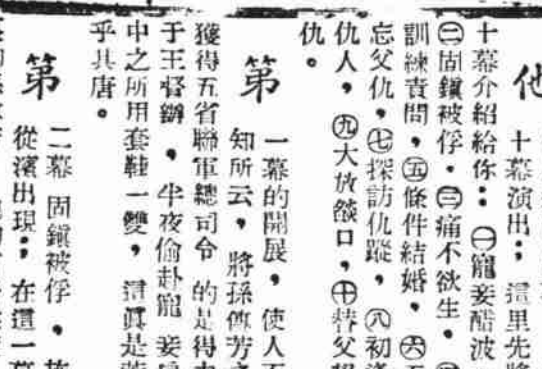 他
十幕演出；這里先將
十幕介紹給你：㊀寵妾醋波
㊁固鎭被俘・㊂痛不欲生・
訓練責問，㊄條件結婚，㊅
忘父仇，㊆探訪仇蹤，㊇初
仇人，㊈大放燄口，㊉替父
仇。
第
一幕的開展，使人
知所云，將孫傳芳
獲得五省聯軍總司令 的是得
于王督辦 ，半夜偷赴寵 妾
中之所用套鞋一雙，這眞是
乎其唐。
第
二幕 固鎭被俘 ，
從濱出現；在這一幕